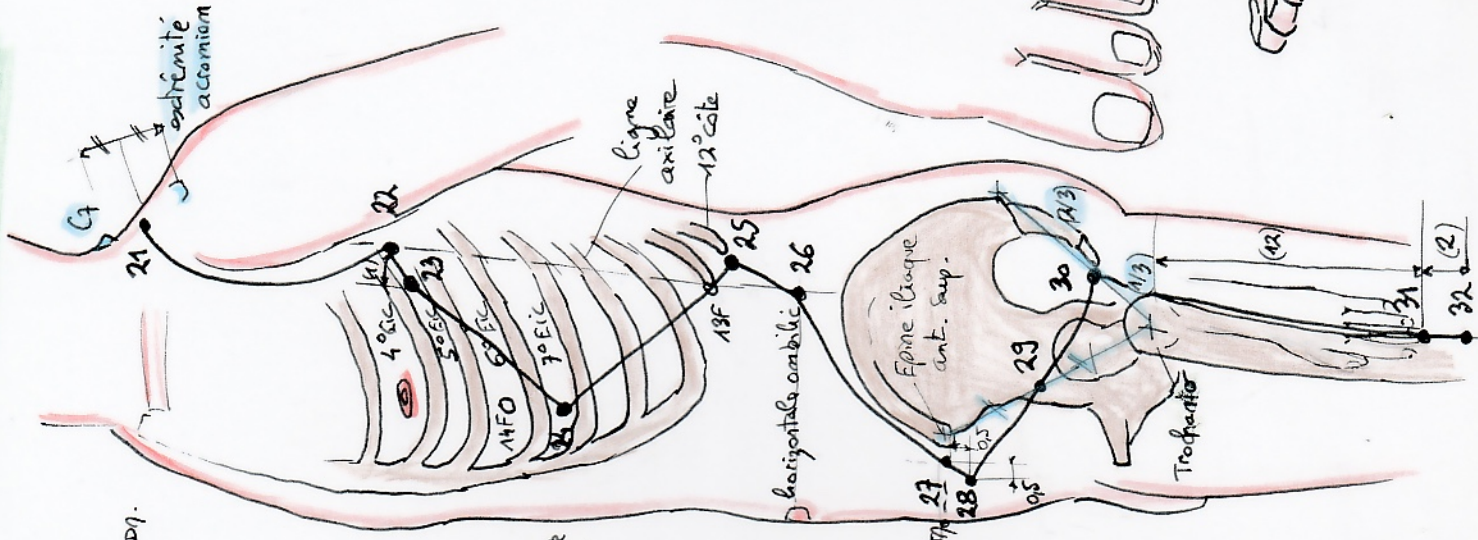 extrémité
acromion
C7
21
22
23
4°EIC
5°EIC
6°EIC
7°EIC
14FO
24
ligne
axilaire
12°côte
25
13F
26
horizontale ombilic
Epine iliaque
ant. sup.
27
28
0,5
0,5
29
30
(2/3)
(1/3)
Trochanter
(12)
31
(2)
32